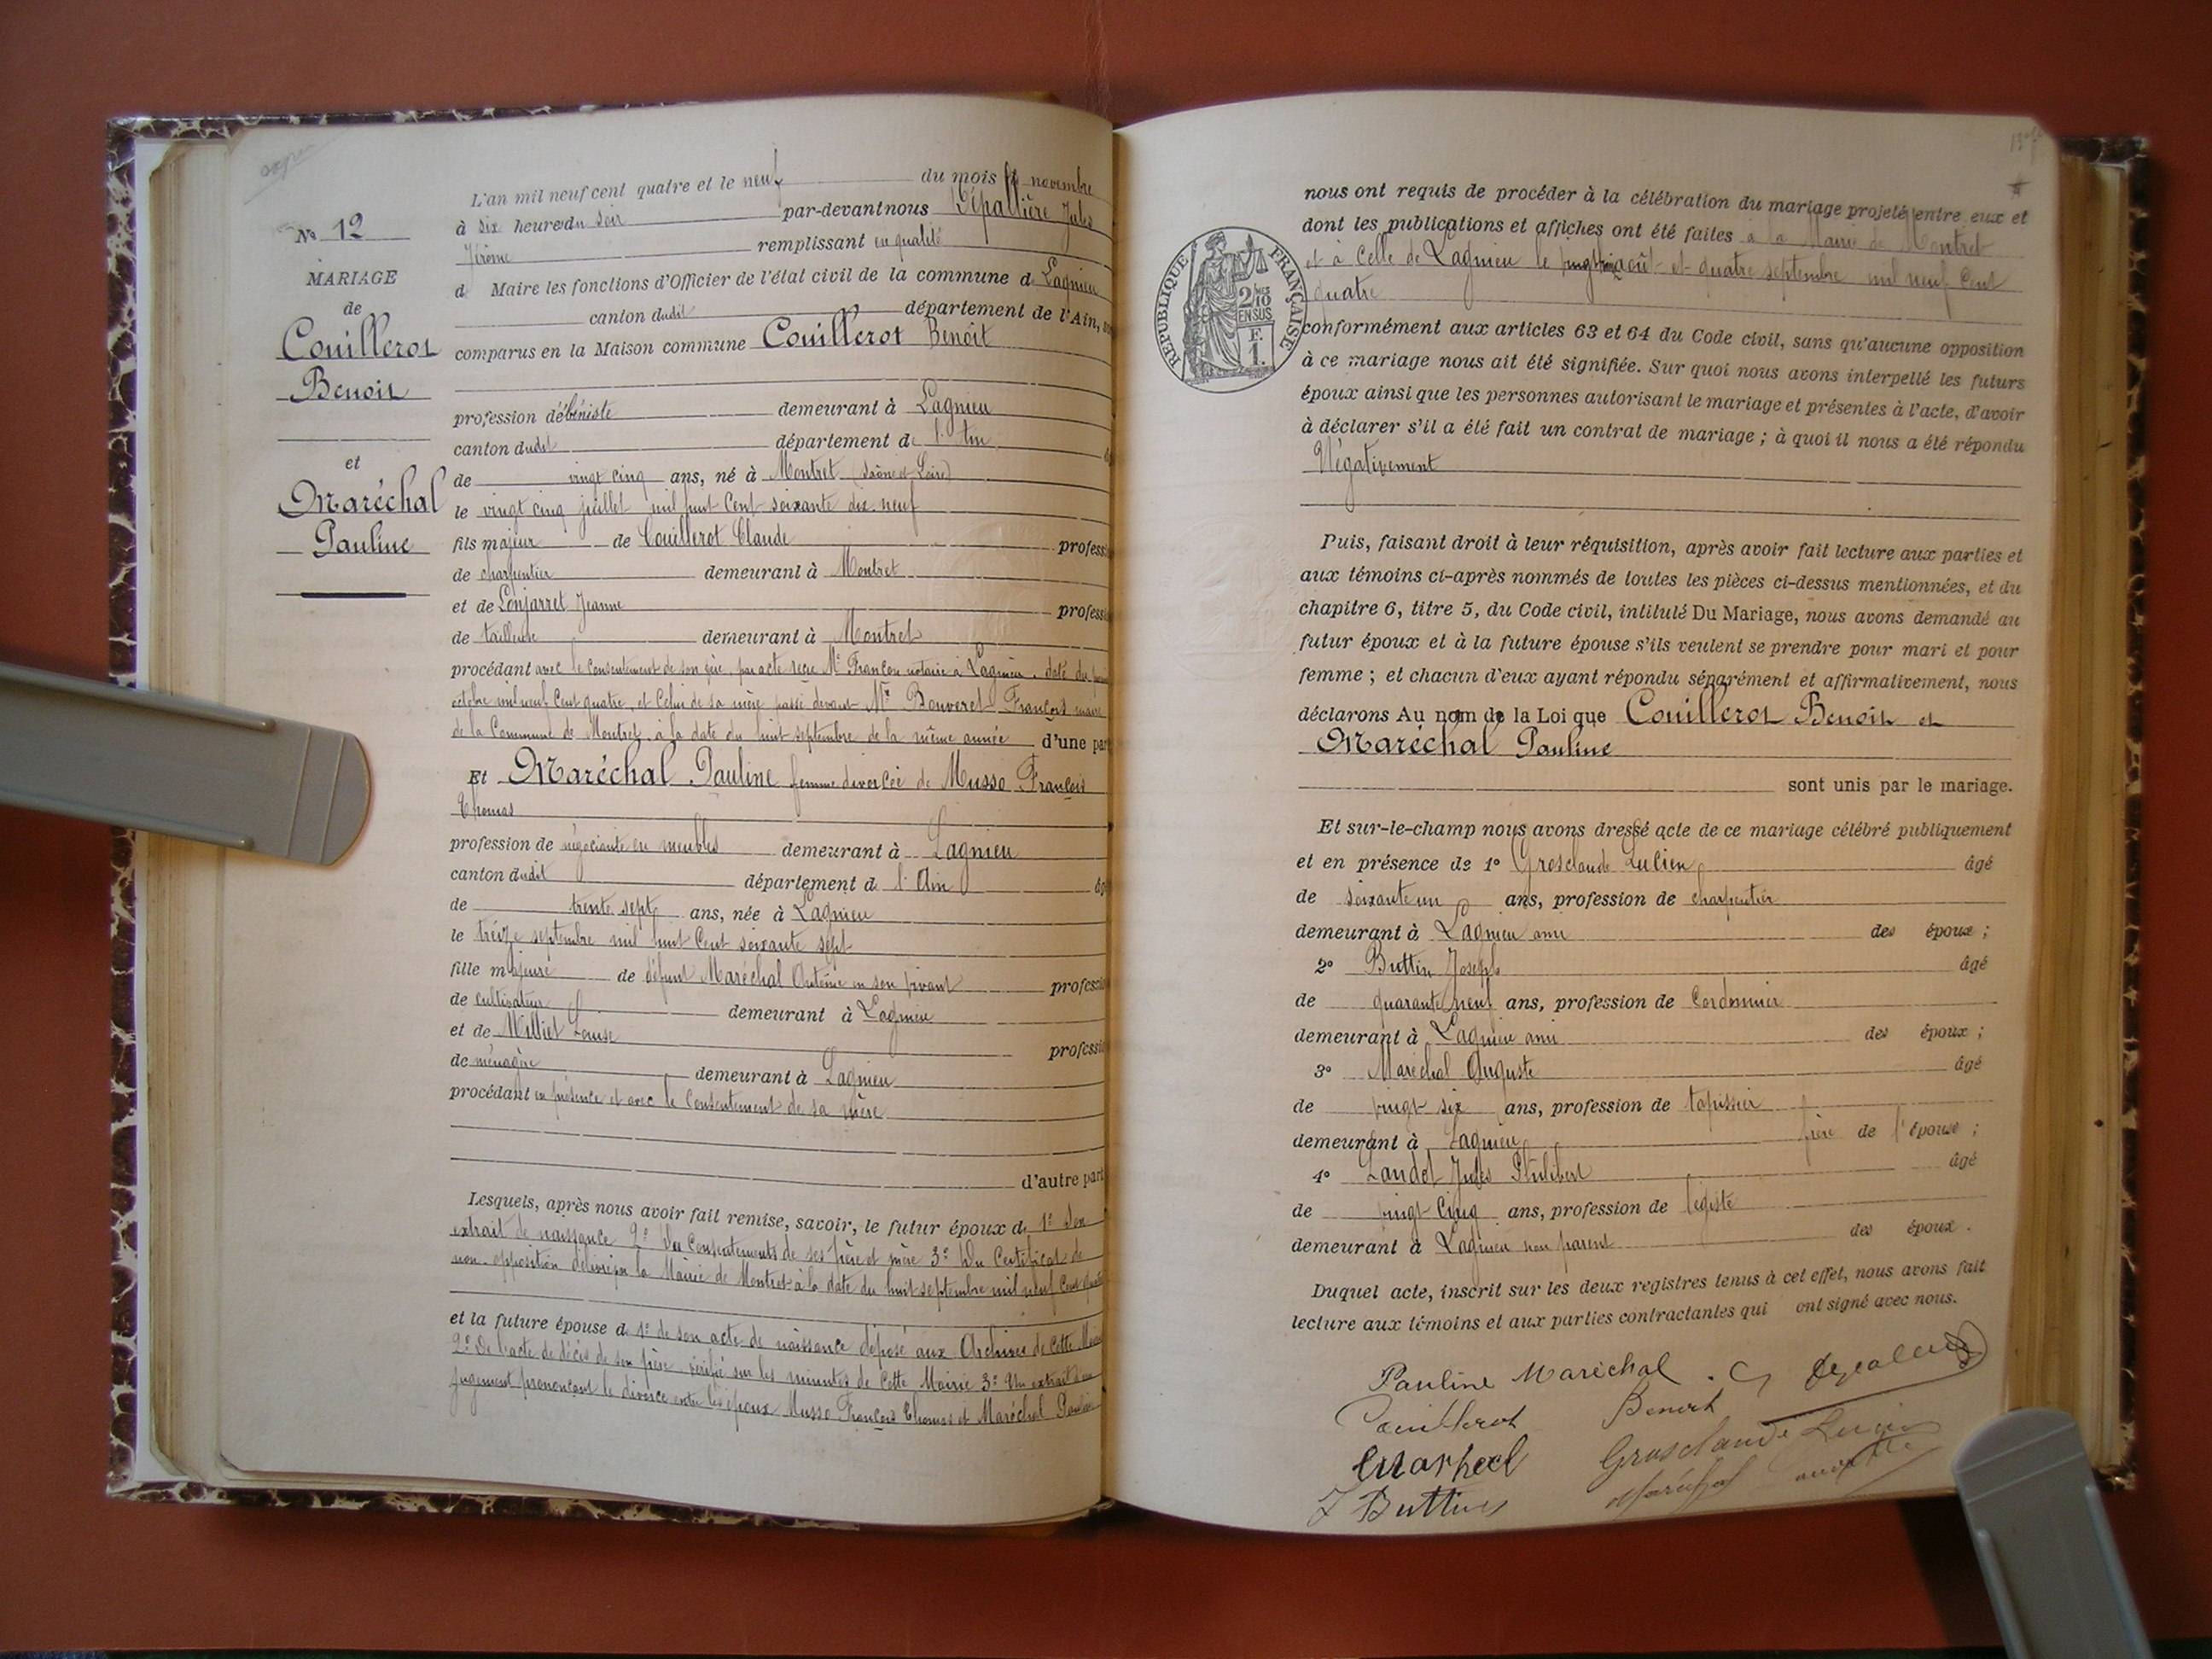 No 12
MARIAGE
de
Couillerot
Benoit
et
Maréchal
Pauline
L'an mil neuf cent quatre et le neuf du mois de novembre
à six heures du soir par-devant nous Dépallière Jules
Jérôme remplissant en qualité
d Maire les fonctions d'Officier de l'état civil de la commune de Lagnieu
canton dudit département de l'Ain,
comparus en la Maison commune Couillerot Benoit
profession d'ébéniste demeurant à Lagnieu
canton dudit département de l'Ain
de vingt cinq ans, né à Montret (Saône et Loire)
le vingt cinq juillet mil huit cent soixante dix-neuf
fils majeur de Couillerot Claude professi
de charpentier demeurant à Montret
et de Lonjarret Jeanne professi
de tailleuse demeurant à Montret
procédant avec le consentement de son père, par acte reçu Me Françon notaire à Lagnieu, daté du
octobre mil neuf cent quatre, et celui de sa mère passé devant Mr Bouveret François maire
de la Commune de Montret, à la date du huit septembre de la même année d'une part
Et Maréchal Pauline femme divorcée de Musso François
Thomas
profession de négociante en meubles demeurant à Lagnieu
canton dudit département de l'Ain âg
de trente sept ans, née à Lagnieu
le treize septembre mil huit cent soixante sept
fille majeure de défunt Maréchal Antoine en son vivant professi
de cultivateur demeurant à Lagnieu
et de Milliet Louise professi
de ménagère demeurant à Lagnieu
procédant en présence et avec le consentement de sa mère
d'autre part
Lesquels, après nous avoir fait remise, savoir, le futur époux de 1° Son
extrait de naissance 2° Des consentements de ses père et mère 3° Du Certificat de
non-opposition délivré par la Mairie de Montret à la date du huit septembre mil neuf cent quatre
et la future épouse de 1° de son acte de naissance déposé aux Archives de cette Mairie
2° De l'acte de décès de son père vérifié sur les minutes de cette Mairie 3° Un extrait d'un
jugement prononçant le divorce entre les époux Musso François Thomas et Maréchal Pauline
RÉPUBLIQUE FRANÇAISE
2/10
EN SUS
F.
1.
nous ont requis de procéder à la célébration du mariage projeté entre eux et
dont les publications et affiches ont été faites à la Mairie de Montret
et à celle de Lagnieu le août et quatre septembre mil neuf cent
quatre
conformément aux articles 63 et 64 du Code civil, sans qu'aucune opposition
à ce mariage nous ait été signifiée. Sur quoi nous avons interpellé les futurs
époux ainsi que les personnes autorisant le mariage et présentes à l'acte, d'avoir
à déclarer s'il a été fait un contrat de mariage ; à quoi il nous a été répondu
Négativement
Puis, faisant droit à leur réquisition, après avoir fait lecture aux parties et
aux témoins ci-après nommés de toutes les pièces ci-dessus mentionnées, et du
chapitre 6, titre 5, du Code civil, intitulé Du Mariage, nous avons demandé au
futur époux et à la future épouse s'ils veulent se prendre pour mari et pour
femme ; et chacun d'eux ayant répondu séparément et affirmativement, nous
déclarons Au nom de la Loi que Couillerot Benoit et
Maréchal Pauline
sont unis par le mariage.
Et sur-le-champ nous avons dressé acte de ce mariage célébré publiquement
et en présence de 1° Grosclaude Lucien âgé
de soixante un ans, profession de charpentier
demeurant à Lagnieu ami des époux ;
2° Buttin Joseph âgé
de quarante neuf ans, profession de Cordonnier
demeurant à Lagnieu ami des époux ;
3° Maréchal Auguste âgé
de vingt six ans, profession de tapissier
demeurant à Lagnieu frère de l'épouse ;
4° Landet Jules Philibert âgé
de vingt cinq ans, profession de légiste
demeurant à Lagnieu non parent des époux .
Duquel acte, inscrit sur les deux registres tenus à cet effet, nous avons fait
lecture aux témoins et aux parties contractantes qui ont signé avec nous.
Pauline Maréchal
Couillerot Benoit
Grosclaude Lucien
J Buttin
Maréchal